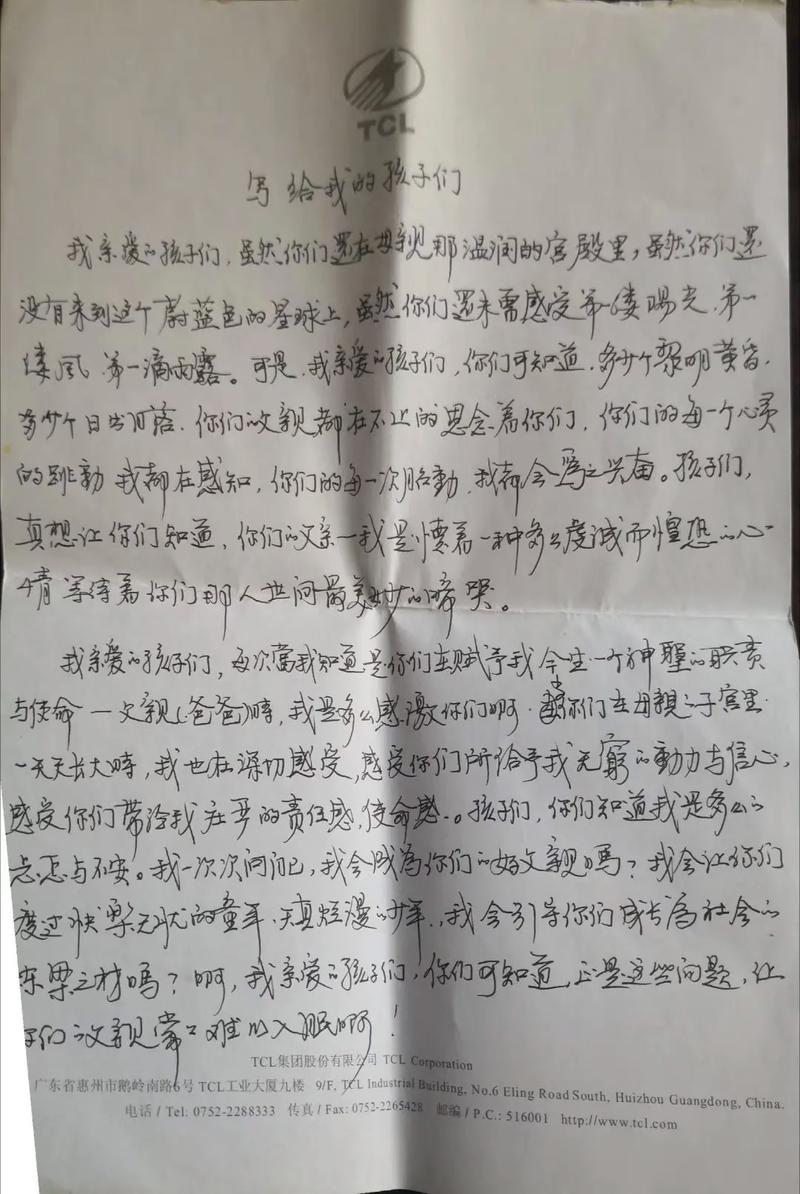 TCL
写给我的孩子们
我亲爱的孩子们，虽然你们还在母亲那温润的宫殿里，虽然你们还
没有来到这个蔚蓝色的星球上，虽然你们还未需感受第一缕陽光、第一
缕风、第一滴雨露。可是，我亲爱的孩子们，你们可知道，多少个黎明黄昏，
多少个日出月落，你们的父亲都在不止的思念着你们，你们的每一个心灵
的跳動我都在感知，你们的每一次胎動，我都会為之兴奋。孩子们，
真想让你们知道，你们的父亲—我是懷着一种多么虔诚而惶恐的心
情等待着你们那人世间最美妙的啼哭。
我亲爱的孩子们，每次當我知道是你们在赋予我今生一个神聖的职责
与使命—父親(爸爸)時，我是多么感激你们啊，你们在母親之子宫里
一天天长大時，我也在深切感受，感受你们所给予我无窮的動力与信心，
感受你们带给我庄严的责任感，使命感。孩子们，你们知道我是多么的
忐忑与不安。我一次次问自己，我会成為你们的好父親嗎？我会让你们
度过快樂无忧的童年、天真烂漫的少年，我会引导你们成长為社会的
栋梁之材嗎？啊，我亲爱的孩子们，你们可知道，正是这些问题，让
你们的父親常常难以入眠啊！
TCL集团股份有限公司 TCL Corporation
广东省惠州市鹅岭南路6号TCL工业大厦九楼 9/F, TCL Industrial Building, No.6 Eling Road South, Huizhou Guangdong, China.
电话 / Tel: 0752-2288333 传真 / Fax: 0752-2265428 邮编 / P.C.: 516001 http://www.tcl.com